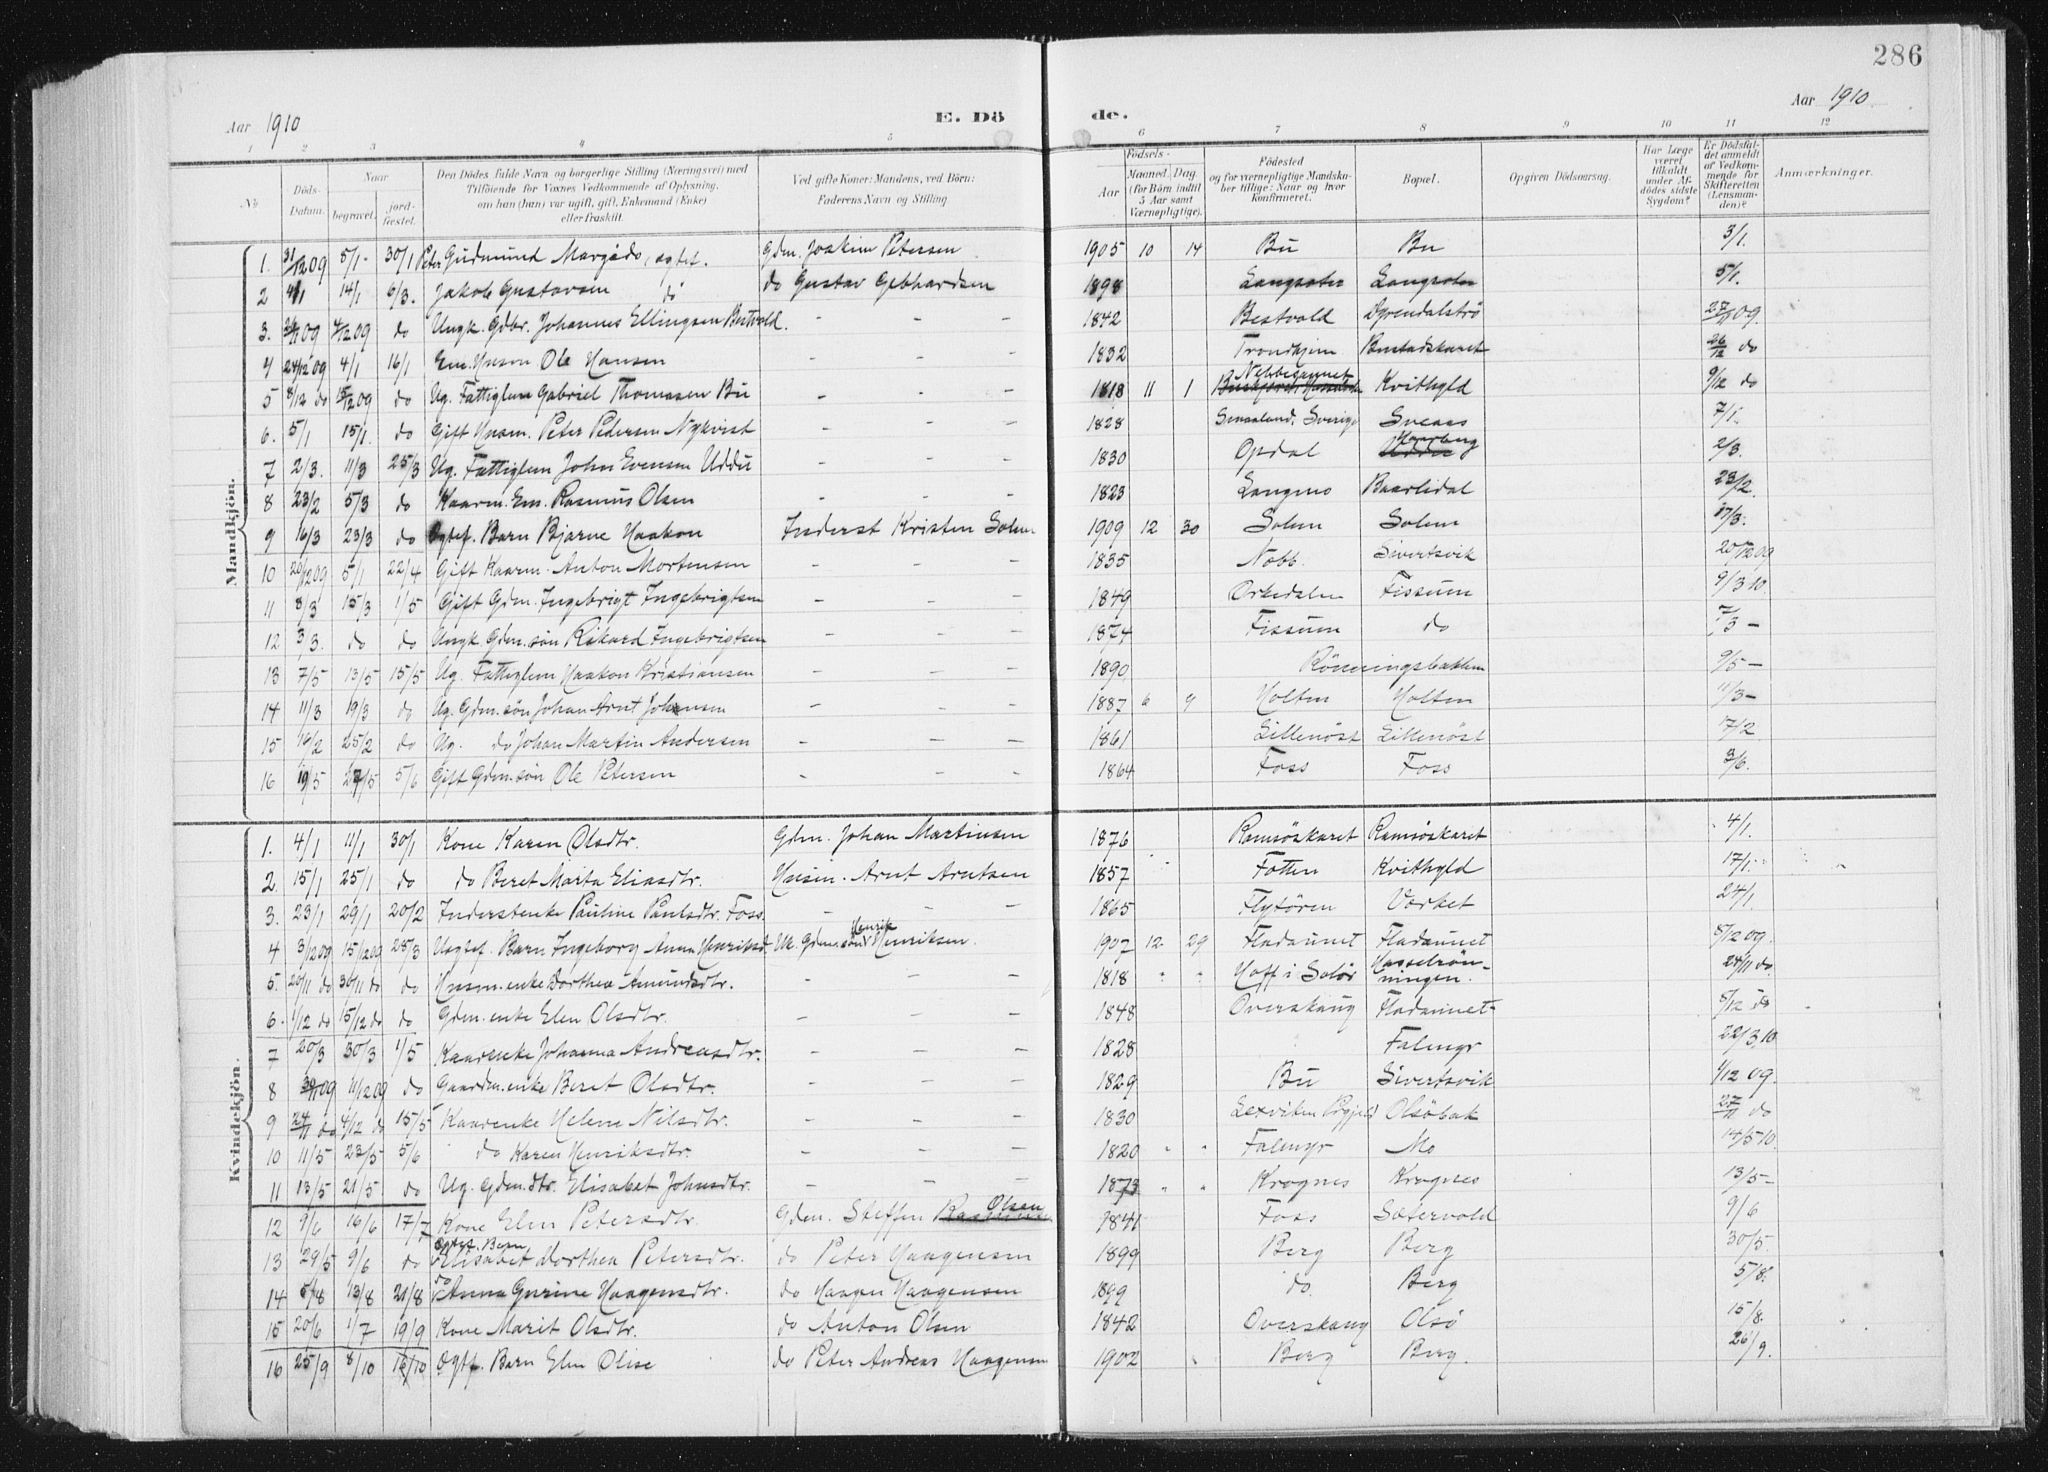 286
Aar 1910 E. Dö de. Aar 1910
1 2 3 4 5 6 7 8 9 10 11 12
No. Döds-Datum. Naar begravet. jord-fæstet. Den Dödes fulde Navn og borgerlige Stilling (Næringsvei) med Tilföiende for Voxnes Vedkommende af Oplysning, om han (hun) var ugift, gift, Enkemand (Enke) eller fraskilt. Ved gifte Koner: Mandens, ved Börn: Faderens Navn og Stilling. Födsels- Aar Maaned. Dag. (for Börn indtil 5 Aar samt Værnepligtige). Födested og for værnepligtige Mandskaber tillige: Naar og hvor Konfirmeret. Bopæl. Opgiven Dödsaarsag. Har Læge været tilkaldt under Afdödes sidste Sygdom? Er Dödsfaldet anmeldt af Vedkommende for Skifteretten (Lensmanden)? Anmærkninger.
Mandkjön.
1. 31/12 09 5/1 30/1 Peter Gudmund Margido, ægtef. Gdm. Joakim Petersen 1905 10 14 Bu Bu 3/1.
2 4/1 14/1 6/3. Jakob Gustavsen do do Gustav Gebhardsen 1898 Langsæter Langsæter 5/1.
3. 09 4/12 09 do Ungk. Gdbr. Johannes Ellingsen Bestvold. - - - 1842 Bestvold Dyrendalströ 27/11 09.
4 24/12 09 4/1 16/1 Em. Husm Ole Hansen - - - 1832 Trondhjem 26/12 do
5 8/12 do 15/12 09 do Ug. Fattiglem Gabriel Thomasen Bu - - - 1818 11 1 Nebbesaunet Kvithyld 9/12 do
6. 5/1 15/1. do Gift Husm. Peter Pedersen Nykvist - - - 1828 Smaaland, Sverige Sveaas 7/1.
7 2/3. 11/3 25/3 Ug. Fattiglem John Evensen Uddu - - - 1830 Opdal Uddu Haarberg 2/3.
8 23/2 5/3 do Kaarm. Em. Rasmus Olsen - - - 1823 Langmo Baarlidal 23/2.
9 16/3 23/3 do Ægtef. Barn Bjarne Haakon Inderst Kristen Solem 1909 12 30 Solem Solem 17/3.
10 20/12 09 5/1 22/4 Gift Kaarm. Anton Mortensen - - - 1835 Nobb. Sivertsvik 20/12 09
11 8/3 15/3 1/5 Gift Gdm. Ingebrigt Ingebrigtsen - - - 1849 Orkedalen Fissum 9/3 10.
12 3/3. do do Ungk Gdm.sön Rikard Ingebrigtsen - - - 1874 Fissum do 7/3 -
13 7/5 13/5 15/5 Ug. Fattiglem Haakon Kristiansen - - - 1890 Rönningsbakken 9/5 -
14 11/3 19/3 do Ug. Gdm.sön Johan Arnt Johansen - - - 1887 6 9 Holten Holten 11/3 -
15 16/2 25/2 do Ug. do Johan Martin Andersen - - - 1861 Lillenöst Lillenöst 17/2
16 19/5 27/5 5/6 Gift Gdm.sön Ole Petersen - - - 1864 Foss Foss 3/6.
Kvindekjön.
1. 4/1 11/1 30/1 Kone Karen Olsdtr. Gdm. Johan Martinsen 1876 Ramsöskaret Ramsöskaret 4/1.
2. 15/1 25/1 do do Beret Marta Eliasdtr. Husm. Arnt Arntsen 1857 Fotten Kvithyld 17/1.
3. 23/1 29/1 20/2 Inderstenke Pauline Paulsdtr. Foss. - - - 1865 Flytören Verket 24/1.
4 3/12 09 15/12 09 25/3 Uægtef. Barn Ingeborg Anna Henriksd. Uk. Gdm.sön Henrik Henriksen. 1907 12 29 Fladaunet Fladaunet 8/12 09.
5. 20/11 do 30/11 do do Husm.enke Dorthea Amundsdtr. - - - 1818 " " Hoff i Solör Hasselrönningen. 24/11 do.
6. 1/12 do 15/12 do do Gdm.enke Elen Olsdtr. - - - 1848 Overskaug Fladaunet 5/12 do
7 20/3 30/3 1/5 Kaarenke Johanna Andreasdtr. - - - 1828 Falmyr 22/3 10.
8 30/11 09 11/12 09 do Gaardm.enke Beret Olsdtr. - - - 1829 Bu Sivertsvik 1/12 09.
9 24/11 do 4/12 do 15/5 Kaarenke Helene Nilsdtr. - - - 1830 Lexviken Olsöbak 27/11 do
10 11/5 23/5 5/6 do Karen Henriksdtr. - - - 1820 " " Falmyr Mo 14/5 10.
11 13/5 21/5. do Ug. Gdm.dtr. Elisabet Johnsdtr. - - - 1873 " " Krognes Krognes 13/5 -
12 9/6 16/6 17/7 Kone Elen Petersdtr. Gdm. Steffen Olsen 1841 Foss Sætervold 9/6
13 29/5 9/6 do Ægtef. Barn Elisabet Dorthea Petersdtr. do Peter Haagensen 1899 Berg Berg 30/5.
14 5/8 13/8 21/8 do Anna Gurine Haagensdtr. do Haagen Haagensen 1899 do. Berg 5/8.
15 20/6 1/7 19/9 Kone Marit Olsdtr. do Anton Olsen 1842 Overskaug Olsö 15/8.
16 25/9 8/10 16/10 Ægtf. Barn Elen Olise do Peter Andreas Haagensen 1902 Berg Berg. 26/9.